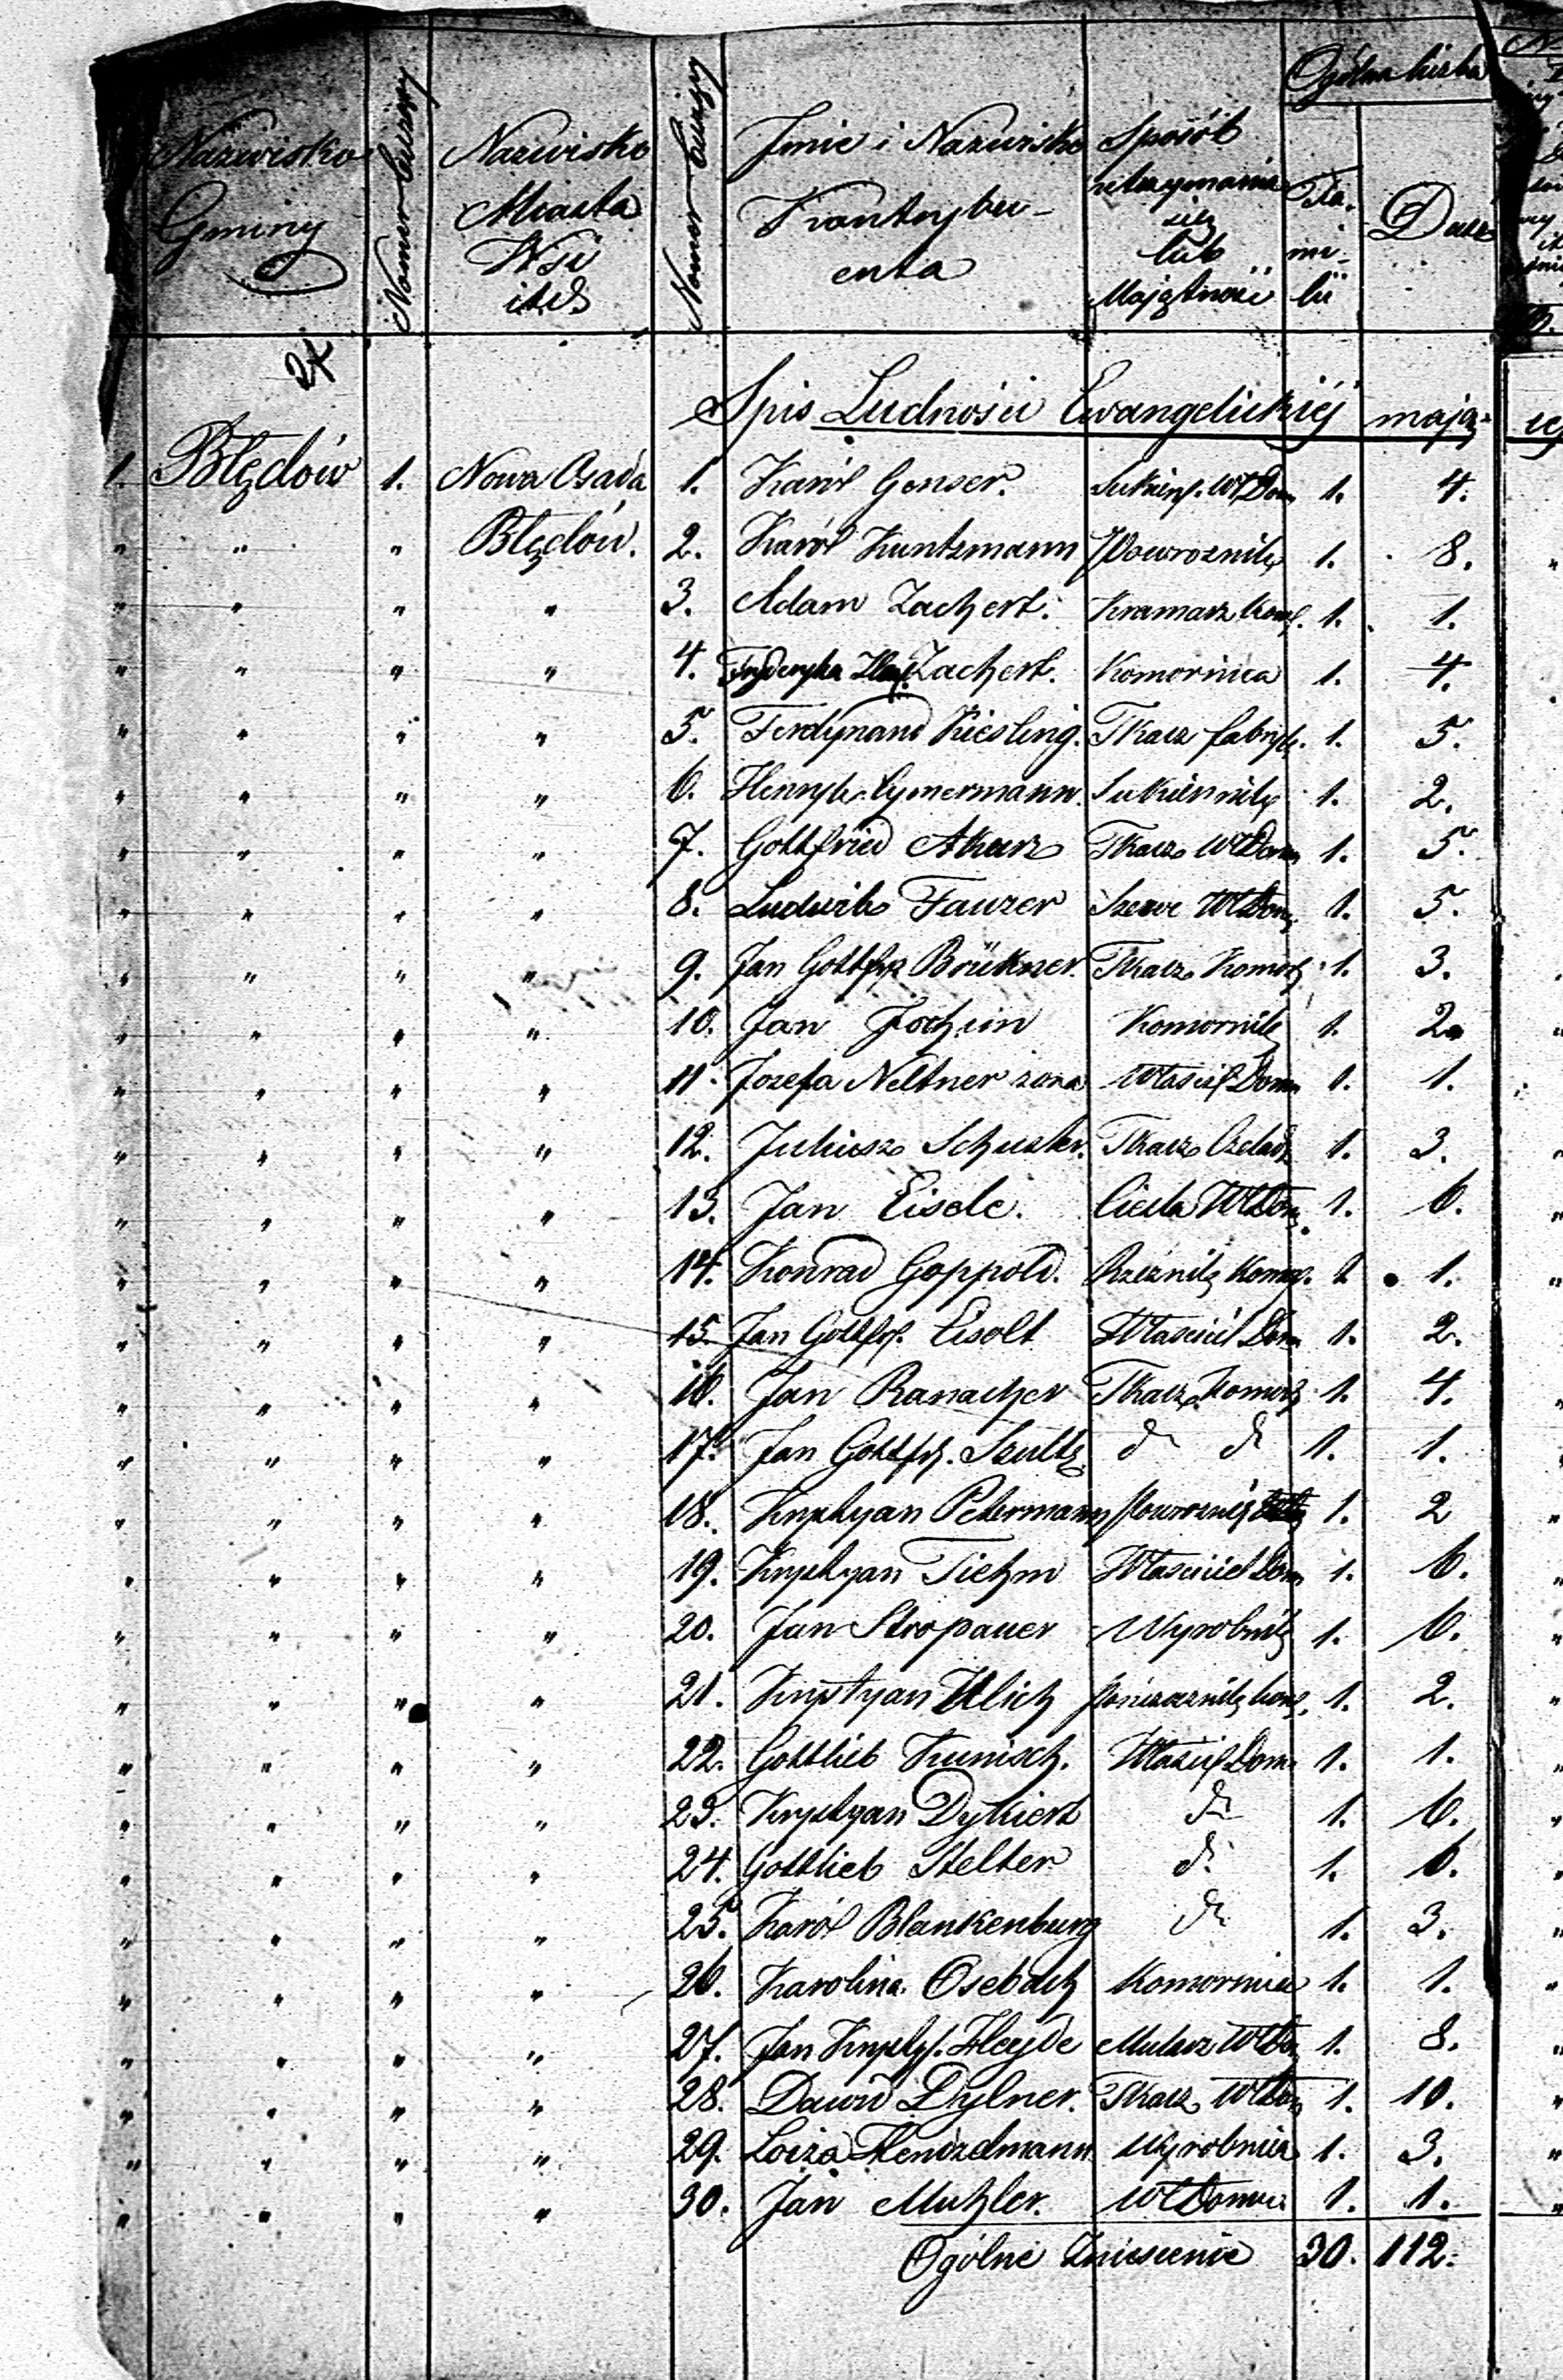 Nazwisko Gminy | Numer bieżący | Nazwisko Miasta Wsi itd | Numer bieżący | Jmie i Nazwisko Kontrybuenta | Sposób utrzymania się lub Majętność | Ogólna liczba | Familii | Dusz
24
Spis Ludności Ewangelickiéj mają-
1. Błędów 1. Nowa Osada 1. Karól Genser. Sukien. Wł Dom 1. 4.
" " " Błędów. 2. Karól Kuntzmann Powroznik 1. 8.
" " " " 3. Adam Zachert. Kramarz Kom. 1. 1.
" " " " 4. Fryderyka Zachert. Komornica 1. 4.
" " " " 5. Ferdynand Kiesling. Tkacz fabryk. 1. 5.
" " " " 6. Henryk Cymermann. Sukiennik 1. 2.
" " " " 7. Gottfried Tkacz Wł Dom 1. 5.
" " " " 8. Ludwik Fauzer Szewc Wł Dom 1. 5.
" " " " 9. Jan Gottfr. Brükner. Tkacz Komor. 1. 3.
" " " " 10. Jan Jochim Komornik 1. 2.
" " " " 11. Jozefa Neltner żona Właścic. Dom 1. 1.
" " " " 12. Juliusz Schuster. Tkacz Czeladz 1. 3.
" " " " 13. Jan Eisele. Ciesla Wł Dom. 1. 6.
" " " " 14. Konrad Goppold. Rzeznik Komor. 1. 1.
" " " " 15. Jan Gottfr. Eisolt Właściciel Dom 1. 2.
" " " " 16. Jan Ranacher Tkacz Komor. 1. 4.
" " " " 17. Jan Gottfr. Szultz do do 1. 1.
" " " " 18. Krystyan Petermann Powroznik 1. 2
" " " " 19. Krystyan Tiehm Właściciel Dom 1. 6.
" " " " 20. Jan Stropauer Wyrobnik 1. 6.
" " " " 21. Krystyan Ulich Pończosznik kom. 1. 2.
" " " " 22. Gottlieb Kunisch. Właścic. Dom 1. 1.
" " " " 23. Krystyan Dytkiert do 1. 6.
" " " " 24. Gottlieb Stelter do 1. 6.
" " " " 25. Karól Blankenburg do 1. 3.
" " " " 26. Karolina Osebach Komornica 1. 1.
" " " " 27. Jan Krysty. Heyde Mularz Wł Dom 1. 8.
" " " " 28. Dawid Dylner. Tkacz Wł Dom 1. 10.
" " " " 29. Loiza Henczelmann Wyrobnica 1. 3.
" " " " 30. Jan Muhler. Wł Domu 1. 1.
Ogólne Zniesienie 30. 112.